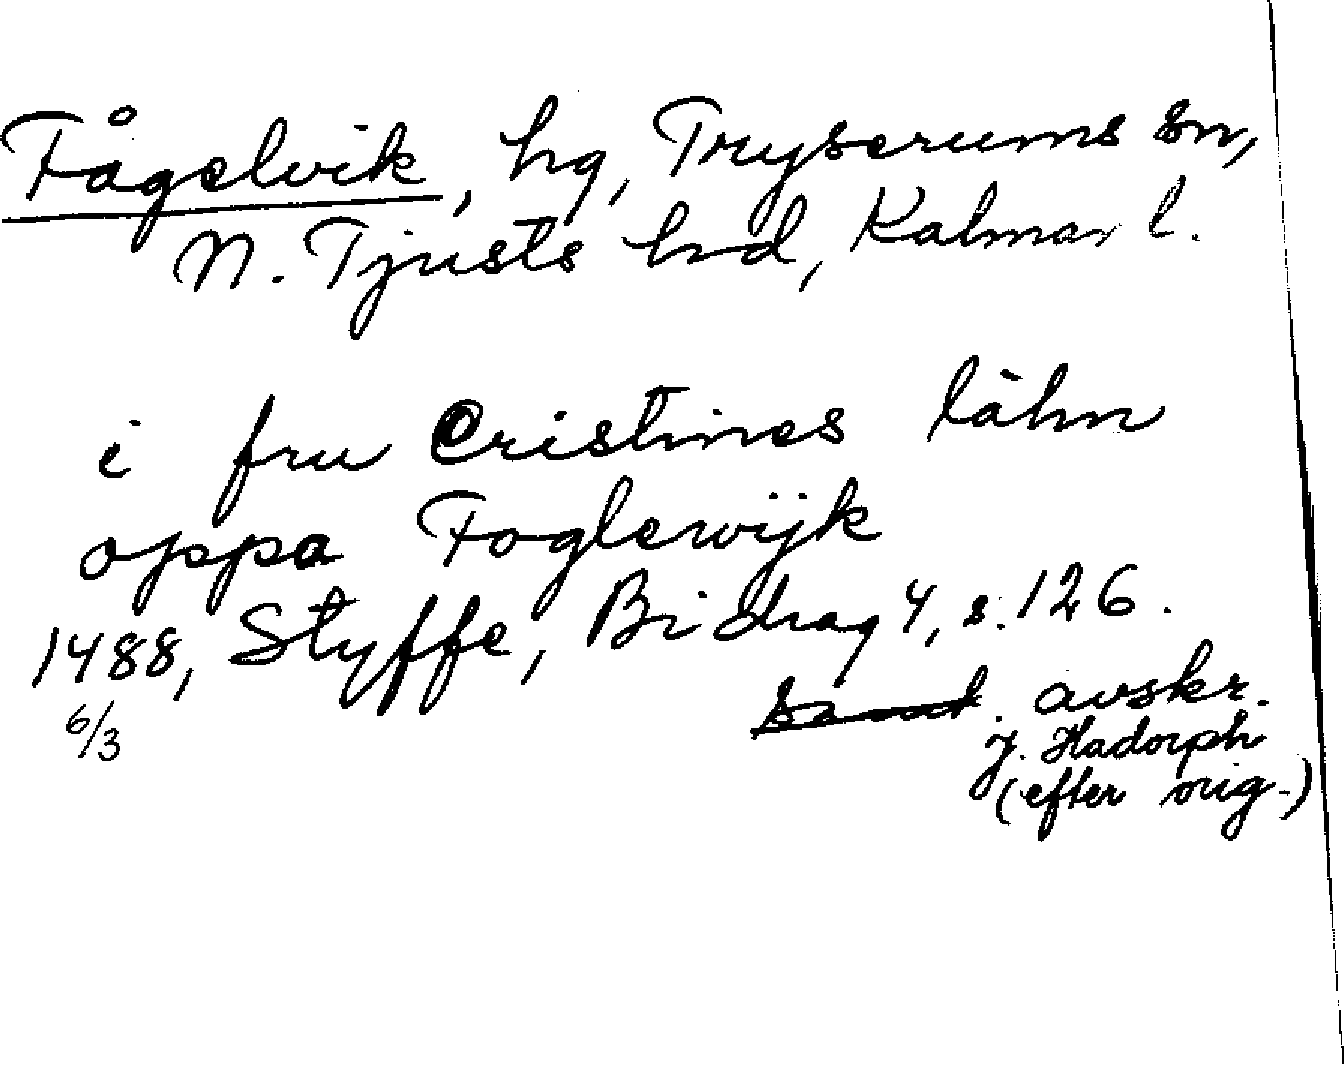 Fågelvik, hg, Tryserums sn,
N. Tjusts hd, Kalmar l.
i fru Cristines lähn
oppa Foglewijk
1488, Styffe, Bidrag 4, s. 126.
6/3
avskr.
J. Hadorph
(efter orig.)